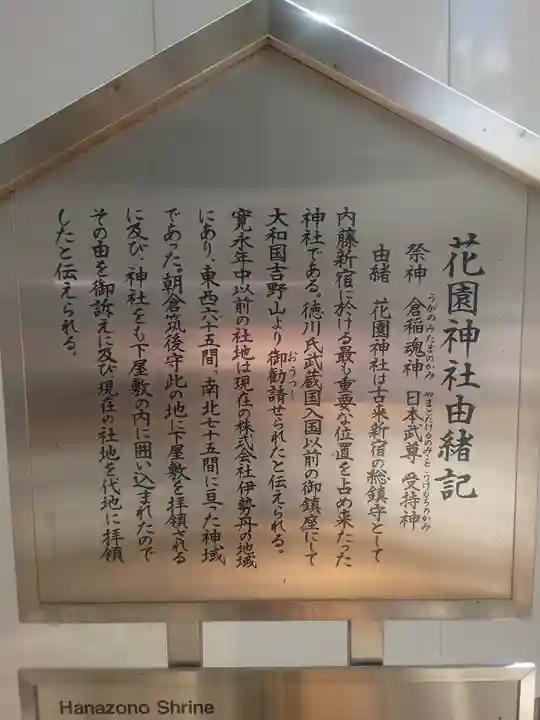 花園神社由緒記
祭神 倉稲魂神 日本武尊 受持神
うかのみたまのかみ やまとたけるのみこと うけもちのかみ
由緒 花園神社は古来新宿の総鎮守として
内藤新宿に於ける最も重要な位置を占め来たった
神社である。徳川氏武蔵国入国以前の御鎮座にして
大和国吉野山より御勧請せられたと伝えられる。
寛永年中以前の社地は現在の株式会社伊勢丹の地域
にあり、東西六十五間、南北七十五間に亘った神域
であった。朝倉筑後守此の地に下屋敷を拝領される
に及び、神社をも下屋敷の内に囲い込まれたので
その由を御訴えに及び現在の社地を代地に拝領
したと伝えられる。
Hanazono Shrine